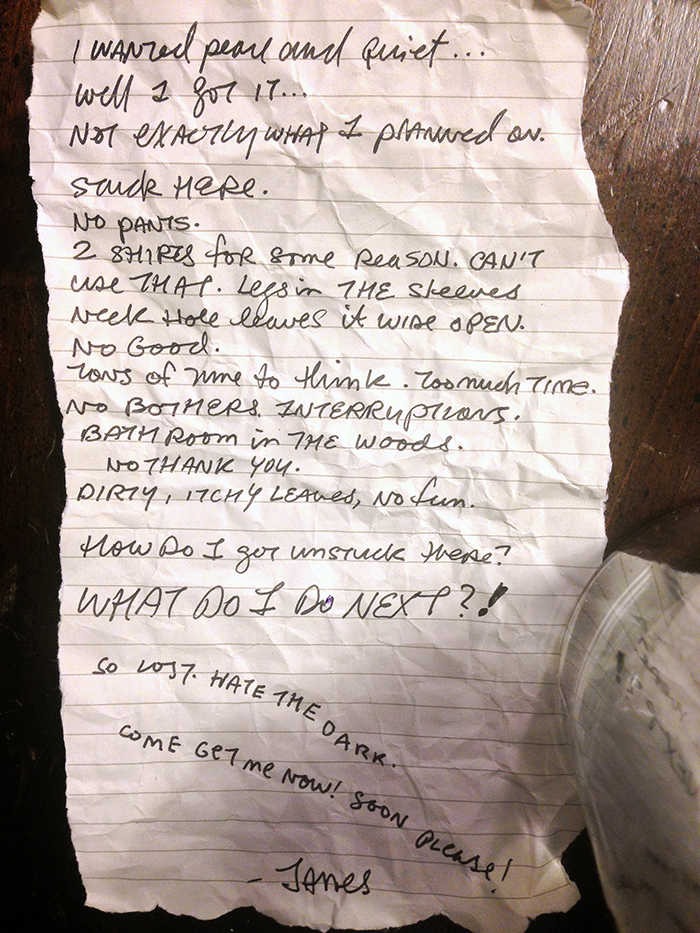 I WANTED peace and Quiet...
well I got IT...
NOT EXACTLY WHAT I PLANNED ON.
STUCK HERE.
NO PANTS.
2 SHIRTS for some REASON. CAN'T
USE THAT. Legs in THE SLEEVES
NECK HOLE leaves it WIDE OPEN.
NO GOOD.
TONS of TIME to think. TOO much TIME.
NO BOTHERS. INTERRUPTIONS.
BATHROOM in THE WOODS.
NO THANK YOU.
DIRTY, ITCHY LEAVES, NO fun.
HOW DO I get UNSTUCK THERE?
WHAT DO I DO NEXT?!
SO LOST. HATE THE DARK.
COME GET ME NOW! SOON PLEASE!
- JAMES